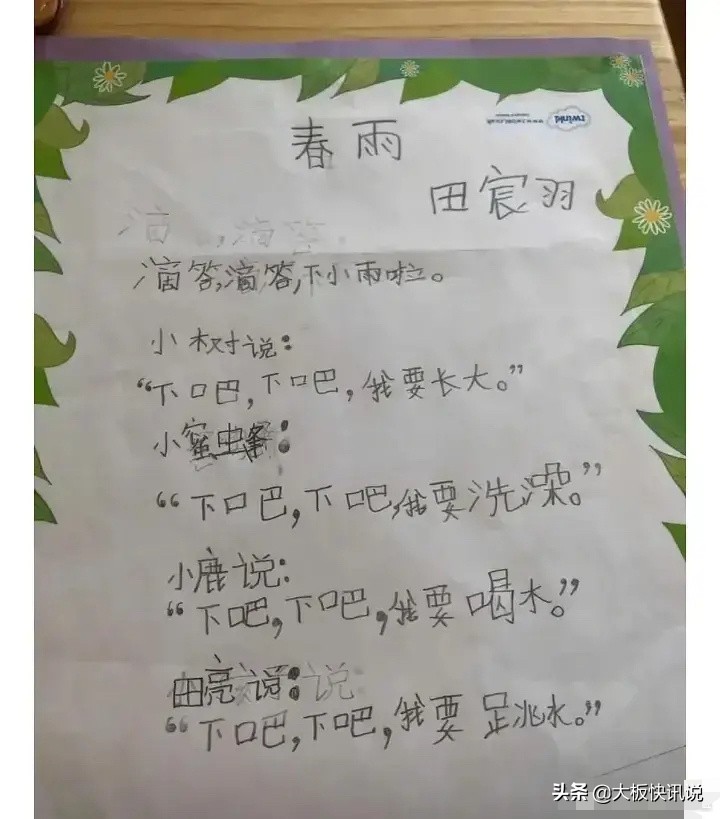 twinkl
www.twinkl.co.uk
春雨
田宸羽
滴,滴答。
滴答,滴答,下小雨啦。
小树说:
“下吧,下吧,我要长大。”
小蜜蜂:
“下吧,下吧,我要洗澡。”
小鹿说:
“下吧,下吧,我要喝水。”
田亮说:说
“下吧,下吧,我要跳水。”
头条 @大板快讯说